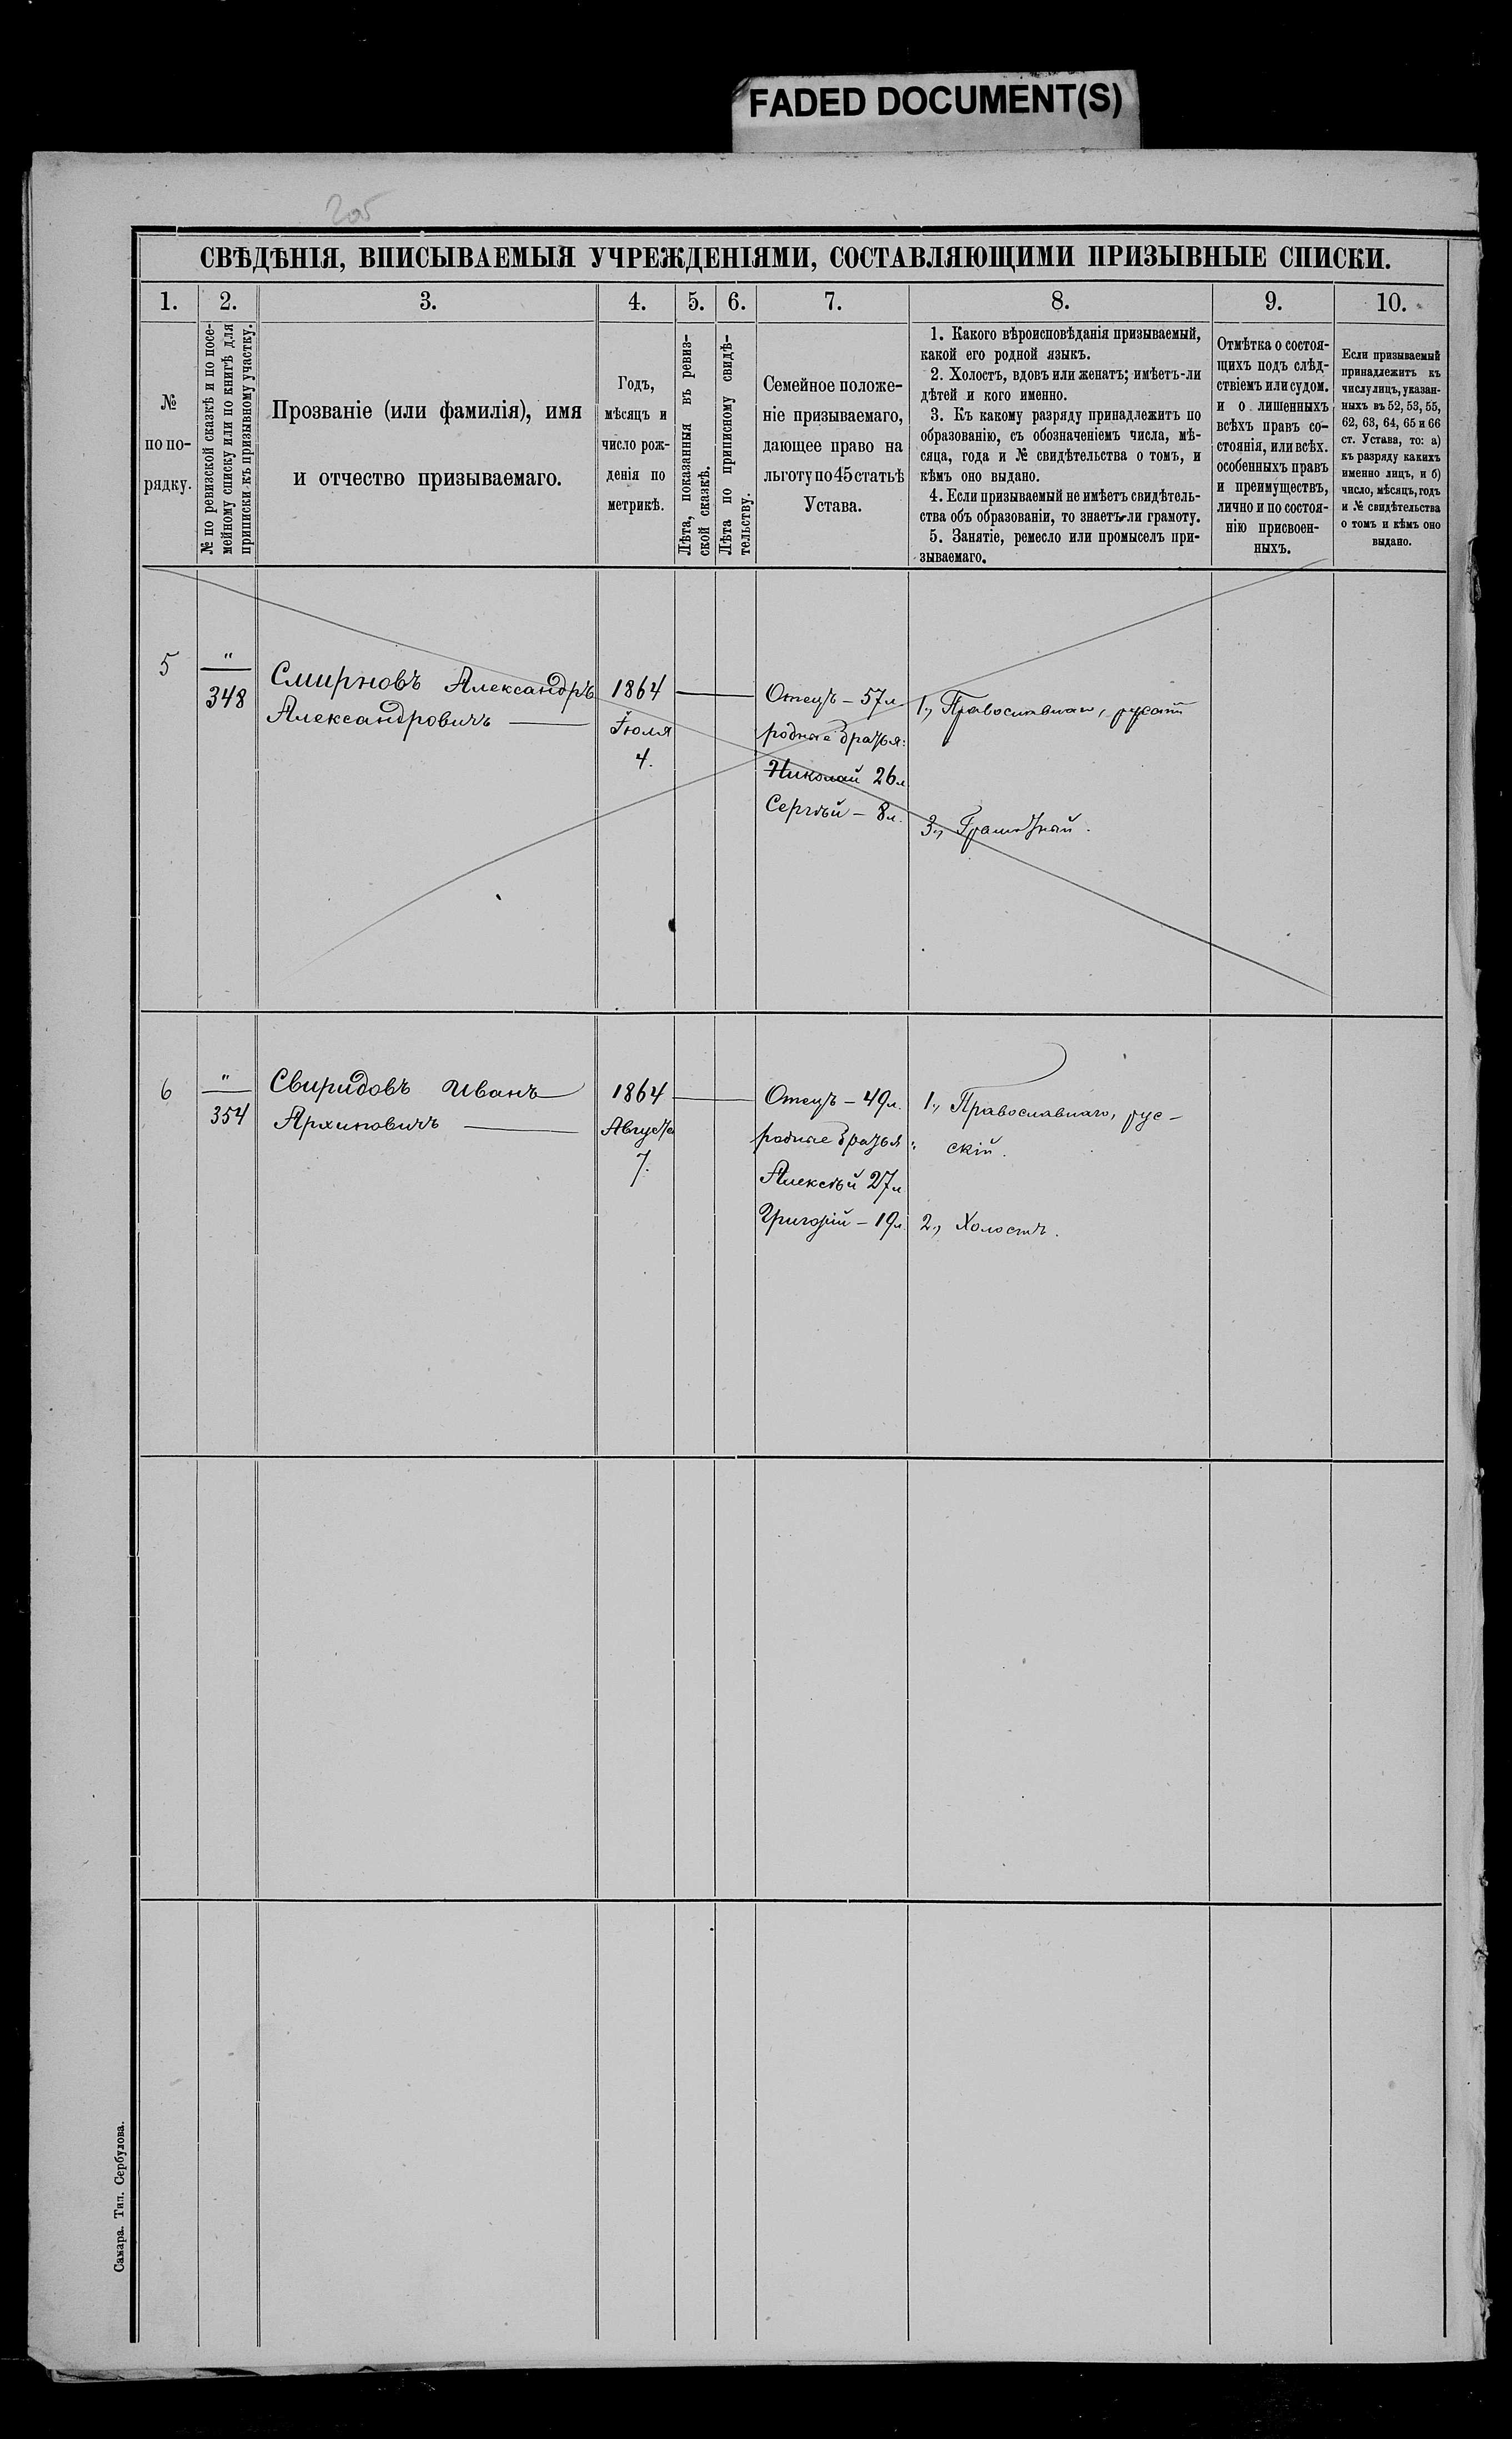 FADED DOCUMENT(S)
205
СВѢДѢНІЯ, ВПИСЫВАЕМЫЯ УЧРЕЖДЕНІЯМИ, СОСТАВЛЯЮЩИМИ ПРИЗЫВНЫЕ СПИСКИ.
1. 2. 3. 4. 5. 6. 7. 8. 9. 10.
№
по по-
рядку.
№ по ревизской сказкѣ и по посе-
мейному списку или по книгѣ для
приписки къ призывному участку.
Прозваніе (или фамилія), имя
и отчество призываемаго.
Годъ,
мѣсяцъ и
число рож-
денія по
метрикѣ.
Лѣта, показанныя въ ревиз-
ской сказкѣ.
Лѣта по приписному свидѣ-
тельству.
Семейное положе-
ніе призываемаго,
дающее право на
льготу по 45 статьѣ
Устава.
1. Какого вѣроисповѣданія призываемый,
какой его родной языкъ.
2. Холостъ, вдовъ или женатъ; имѣетъ-ли
дѣтей и кого именно.
3. Къ какому разряду принадлежитъ по
образованію, съ обозначеніемъ числа, мѣ-
сяца, года и № свидѣтельства о томъ, и
кѣмъ оно выдано.
4. Если призываемый не имѣетъ свидѣтель-
ства объ образованіи, то знаетъ-ли грамоту.
5. Занятіе, ремесло или промыселъ при-
зываемаго.
Отмѣтка о состоя-
щихъ подъ слѣд-
ствіемъ или судом.
и о лишенныхъ
всѣхъ правъ со-
стоянія, или всѣх.
особенныхъ правъ
и преимуществъ,
лично и по состоя-
нію присвоен-
ныхъ.
Если призываемый
принадлежитъ къ
числу лицъ, указан-
ныхъ въ 52, 53, 55,
62, 63, 64, 65 и 66
ст. Устава, то: а)
къ разряду какихъ
именно лицъ, и б)
число, мѣсяцъ, годъ
и № свидѣтельства
о томъ и кѣмъ оно
выдано.
5
"
348
Смирновъ Александръ
Александровичъ —
1864
Іюля
4.
Отецъ — 57 л.
родные братья:
Николай 26 л.
Сергѣй — 8 л.
1., Православнаго, русскій
3., Грамотный.
6
"
354
Свиридовъ Иванъ
Архиповичъ —
1864
Августа
7.
Отецъ — 49 л.
родные братья:
Алексѣй 27 л.
Григорій — 19 л.
1., Православнаго, рус-
скій.
2., Холостъ.
Самара. Тип. Сербулова.